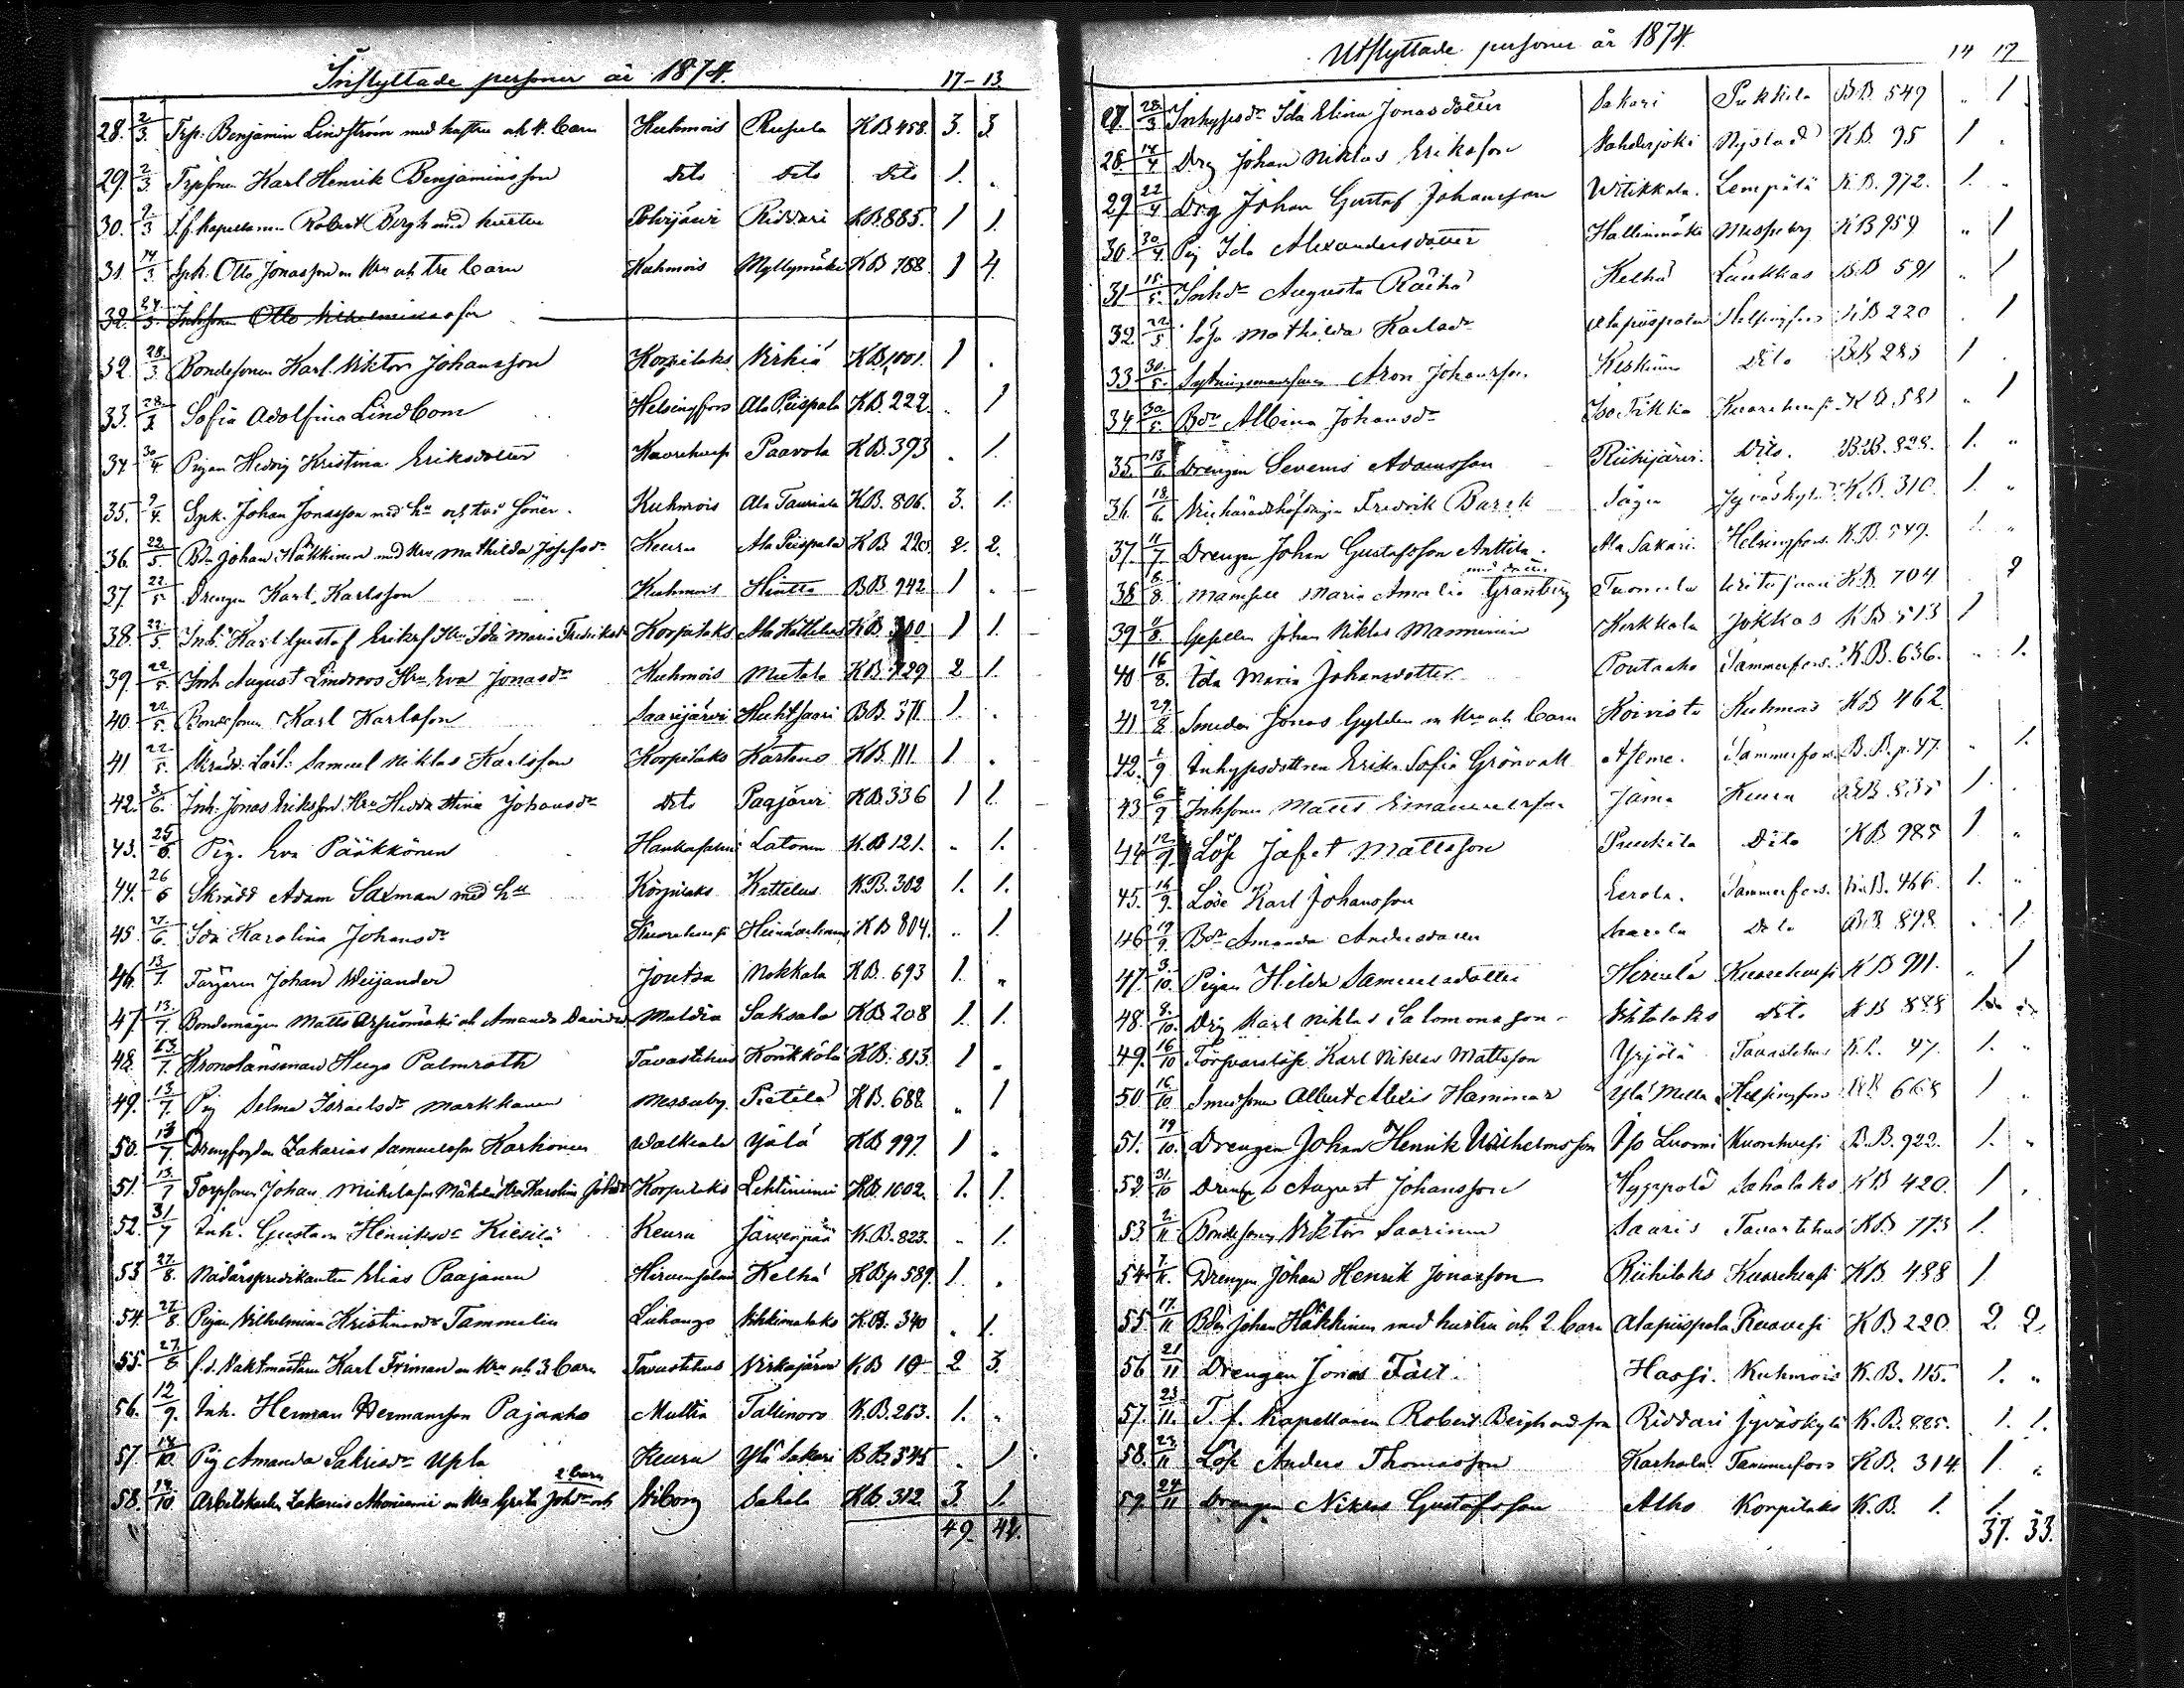 Inflyttade personer år 1874. 17-13.
28. 2/3. Trp. Benjamin Lindström med hustru och 4. barn Kuhmois Ruhula KB 458. 3. 3.
29. 2/3 Trpsonen Karl Henrik Benjaminsson dito dito dito 1. "
30. 9/3 T.f. Kapellanen Robert Bergh med hustru Pohijärwi Riddari KB. 885. 1 1.
31 14/3 Spk. Otto Jonasson m Hru och tre barn Kuhmois Myllymäki KB 788. 1 4.
32. 24/3. Inhsonen Otto Wilhelminasson
32. 28/3. Bondesonen Karl Viktor Johansson Korpilaks Wirkiä KB. 1001. 1 .
33. 28/3 Sofia Adolfina Lindbom Helsingfors Ala Piispala KB. 222. " 1
34 30/4 Pigan Hedvig Kristina Eriksdotter Kuorehvesi Paavola KB 393 . 1.
35. 9/4. Spk. Johan Jonasson med hu och två söner. Kuhmois Ala Tauriala KB. 806. 3. 1.
36. 22/5. Bdn Johan Häkkinen med Hru Mathilda Josefsdr Keuru Ala Piispala KB. 220. 2. 2.
37. 22/5 Drengen Karl Karlsson Kuhmois Hintta BB. 942 1 .
38. 22/5. Inh. Karl Gustaf Eriksf Hru Ida Maria Fredriksdr Korpilaks Ala Kattelus KB. 300 1 1.
39. 22/5. Inh August Lindroos Hru Eva Jonasdr Kuhmois Mutala KB. 729 2 1.
40. 22/5. Bondesonen Karl Karlsson Saarijärvi Huhtsaari BB. 371. 1. .
41 22/5. Skrädd. Lärl. Samuel Niklas Karlsson Korpilaks Kartano KB. 111. 1 .
42. 3/6. Inh. Jonas Eriksson Hru Hedda Stina Johansdr dito Paajärvi KB. 336 1 1.
43. 25/6. Pig. Eva Pääkkönen Hankasalmi Latonen KB 121. " 1.
44. 26/6 Skrädd Adam Saxman med hu Korpilaks Kattelus K.B. 302 1. 1.
45. 27/6. Ida Karolina Johansdr Kuorehvesi KB 804. " 1.
46. 13/7. Färgaren Johan Weijander Joutsa Nokkala KB. 693 1. "
47 13/7. Bondemågen Matts Arpiomäki och Amanda Davidsd Multia Saksala KB 208 1. 1.
48. 13/7. Kronolänsman Hugo Palmroth Tavastehus Konkkola KB. 813. 1 "
49. 13/7. Pig Selma Israelsdr Markkanen Messuby Pietilä KB. 688. " 1
50. 13/7. Zakarias Samuelsson Karhonen Walkeala Yälä KB 997. 1 "
51. 13/7 Torpsonen Johan Mickelsson Mäkelä Hru Karolina Johsdr Korpilaks Lehtiniemi KB. 1002. 1. 1.
52. 31/7 Inh. Gustava Henriksdr Kiesilä Keuru Järvenpää K.B. 823. " 1.
53 27/8. Nådårspredikanten Elias Paajanen Hirvensalmi Kelhä KBp 589. 1 .
54. 27/8. Pigan Wilhelmina Kristinasdr Tammelin Luhango KB. 340 " 1.
55. 27/8 f.d. Vaktmästaren Karl Friman m Hru och 3 barn Tavastehus Virkajärvi KB 10 2 3.
56. 12/9. Inh. Herman Hermansson Pajaaho Multia Tallinoro K.B. 263. 1. "
57. 14/10. Pig Amanda Sakrisdr Upla Keuru Ylä Sakari BB 545 . 1
58. 14/10. Arbetskarlen Zakarias Ahoniemi m Hru Greta Johdr och 2 barn Wiborg Sahala KB. 312 3. 1.
49. 42.
Utflyttade personer år 1874. 14 17
27. 28/3 Inhypsdr Ida Elina Jonasdotter Sakari Pukkila BB. 549 " 1
28. 14/4 Drg Johan Niklas Eriksson Sahdesjoki Nystad KB. 95 1 .
29 22/4 Drg Johan Gustaf Johansson Witikkala. Lempälä K.B. 972. 1. "
30. 30/4. Pig Ida Alexandersdotter Hallinmäki Messuby KB 959 " 1
31 15/5. Inhdr Augusta Räihä Kelhä Luukkas BB 591 " 1
32 22/5 Lösa Mathilda Karlsdr Alapiispala Helsingfors KB 220 . 1
33 30/5. Aron Johansson Keskinen Dito BB 283 1 .
34 30/5. Bdr Albina Johansdr Iso Tikkia Kuorehvesi KB. 581 " 1
35. 13/6. Drengen Severus Adamsson Riihijärvi. Dito. B.B. 828. 1. "
36. 18/6. Vicehäradshöfdingen Fredrik Barck Sågen Jyväskylä K.B. 310. 1. "
37. 11/7. Drengen Johan Gustafsson Anttila. Ala Sakari. Helsingfors K.B. 549. 1. "
38 8/8. Mamsell Maria Amalia Granberg med dotter Tuomela Kiitisaari K.B. 704 2
39 11/8. Gesellen Johan Niklas Manninen Kerkkola Jokkas KB 513 1
40 16/8. Ida Maria Johansdotter Poutaaho Tammerfors. K.B. 636. " 1.
41 29/8 Smeden Jonas Gylden m Hru och barn Koivisto Kuhmois KB 462
42. 1/9 Inhypsdottren Erika Sofia Grönvall Tammerfors B.B. p. 47. " 1.
43 6/9 Inhsonen Matts Emanuelsson Jämä Keuru BB. 835 1.
44 12/9. Löse Jafet Mattsson Puukila Dito KB 985 1 "
45. 14/9. Löse Karl Johansson Eerola. Tammerfors. KB. 466. 1. "
46 19/9. Bdr Amanda Andersdotter Dito BB 898. . 1
47. 3/10. Pigan Hilda Samuelsdotter Kuorehvesi KB 911. . 1
48. 9/10. Drg Karl Niklas Salomonsson dito KB 888 1
49. 16/10 Försvarslöse Karl Niklas Mattsson Yrjölä Tavastehus K.B. 47. 1. "
50 16/10 Smedsonen Albert Alexis Hammar Ylä Mella Helsingfors BB 668 1 "
51. 19/10. Drengen Johan Henrik Wilhelmsson Iso Luomi Kuorehvesi B.B. 922. 1. "
52. 31/10 August Johansson Hyppölä Sahalaks KB 420. 1 .
53 2/11. Bondesonen Viktor Saarinen Saaris Tavastehus KB 773 1.
54 7/11. Drengen Johan Henrik Jonasson Riihilaks Kuorehvesi KB. 488 1
55 17/11 Bdn Johan Häkkinen med hustru och 2 barn Alapiispala Ruovesi KB 220. 2. 2.
56 21/11 Drengen Jonas Fält. Hassi. Kuhmois K.B. 115. 1. "
57. 23/11. T.f. Kapellanen Robert Bergh med fru Riddari Jyväskylä K.B. 885. 1. 1.
58. 23/11 Löse Anders Thomasson Karhola Tammerfors KB. 314. 1. "
59. 24/11 Drengen Niklas Gustafsson Alho Korpilaks K.B. 1. 1.
37. 33.